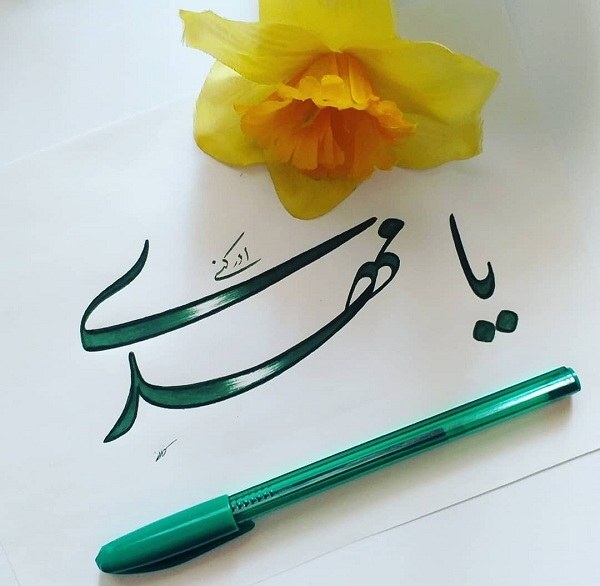 یا مهدی
ادرکنی